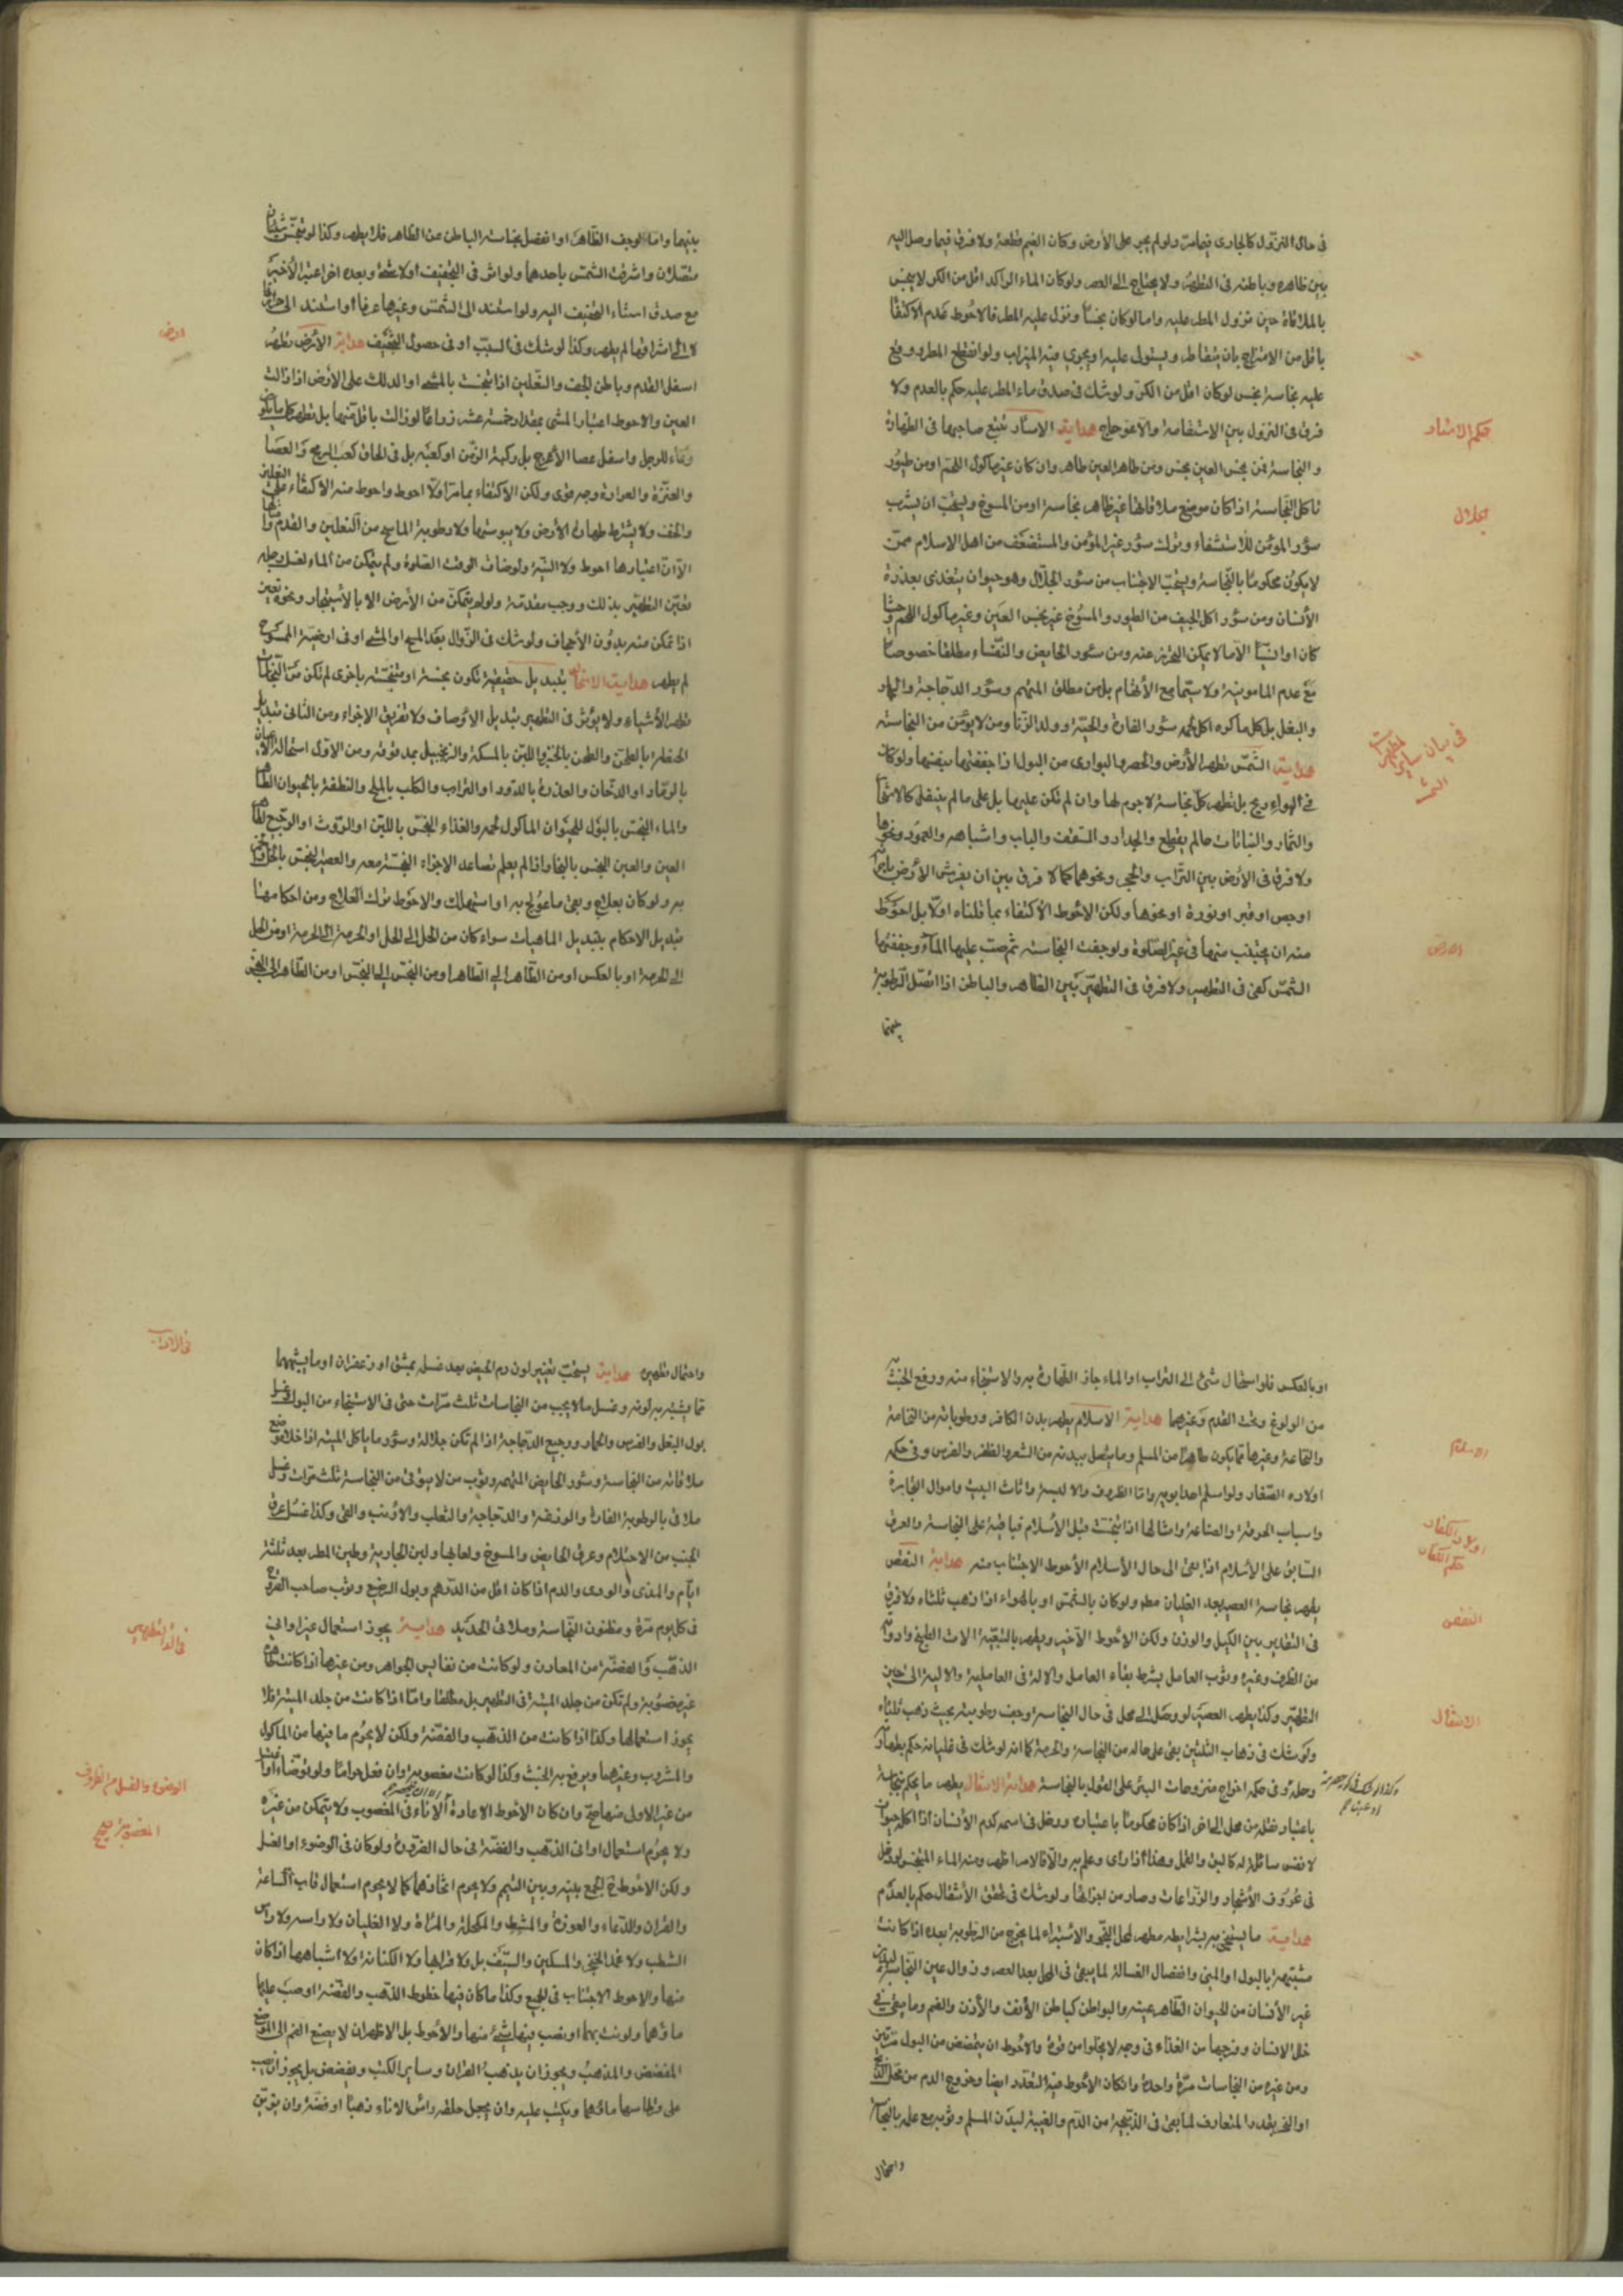 فى حال النزول كالجارى فيما مر ولو لم يجر على الأرض وكان الغيم قطعة ولا فرق فيما وصل اليه
بين ظاهره وباطنه فى التطهير ولا يحتاج الى العصر ولو كان الماء الراكد اقل من الكر لا ينجس
بالملاقاة حين نزول المطر عليه واما لو كان نجسًا ونزل عليه المطر فالاحوط عدم الاكتفا
باقل من الامتزاج بان يتقاطر ويستولى عليه او يجرى فيه الميزاب ولو انقطع المطر ووقع
عليه نجاسة نجس لو كان اقل من الكر ولو شك فى صدق ماء المطر عليه حكم بالعدم ولا
فرق فى النزول بين الاستقامة والاعوجاج هداية الاسآر تتبع صاحبها فى الطهارة
حكم الاسئار
و النجاسة فمن نجس العين نجس ومن طاهر العين طاهر وان كان غير مأكول اللحم او من طيور
تاكل النجاسة اذا كان موضع ملاقاتها غير ظاهر نجاسة او من المسوخ ويستحب ان يشرب
جلال
سؤر المؤمن للاستشفاء وترك سؤر غير المؤمن والمستضعف من اهل الاسلام ممن
لا يكون محكومًا بالنجاسة ويستحب الاجتناب من سئور الجلّال وهو حيوان يتغذى بعذرة
الأنسان ومن سؤر اكل الجيف من الطيور والمسوخ غير نجس العين وغير مأكول اللحم
كان او انسيًا الا ما لا يمكن التحرز عنه ومن سئور الحايض والنفساء مطلقا خصوصا
مع عدم المامونية ولا سيما مع الأتهام بل من مطلق المتهم وسؤر الدجاجة والحمار
والبغل بل كل ما كره اكل لحمه سئور الفارة والحية وولد الزنا ومن لا يؤمن من النجاسة
فى بيان ساير المطهرات
هداية الشمس تطهر الأرض والحصر والبوارى من البول اذا جففتها بيقينها ولو كان
الشمس
فى الهواء ريح بل تطهر كل نجاسة لا جرم لها وان لم تكن عليها بل على ما لم ينقل كالاشجار
والثمار والنباتات ما لم يقطع والجدار والسقف والباب واشباهه والعمود ونحوها
ولا فرق فى الأرض بين التراب والحجر ونحوهما كما لا فرق بين ان يفرش الأرض
او جص او قير او نورة او نحوها ولكن الاحوط الاكتفاء بما قلناه اولا بل احوط
منه ان يجتنب منها فى غير الصلوة ولو جفت النجاسة ثم صب عليها الماء وجففتها
الارض
الشمس كفى فى التطهير ولا فرق فى التطهير بين الظاهر والباطن اذا اتصل الرطوبة
بينهما
بينهما واما لو جف الظاهر او انفصل نجاسة الباطن عن الظاهر فلا يطهر وكذا لو تنجس شيئان
متصلان واشرقت الشمس باحدهما ولو اثر فى التجفيف اولا شئ وبعده اخر اعتبر الأخير
مع صدق استناد التجفيف اليه ولو استند الى الشمس وغيرها عرفا او استند الى حرارتها
لا الى اشراقها لم يطهر وكذا لو شك فى السبب او فى حصول التجفيف هداية الأرض تطهر
ارض
اسفل القدم وباطن الخف والنعلين اذا تنجست بالمشى او الدلك على الأرض اذا زالت
العين والاحوط اعتبار المشى بمقدار خمسة عشر ذراعا لو زالت باقل منها بل تطهر كل ما يكون
وقاء للرجل واسفل عصا الأعرج بل ركبة الزمن او كعبه بل فى الحاق كعب الرمح والعصا
والعنزة والعرادة وجه قوى ولكن الاكتفاء بما مر اولا احوط واحوط منه الاكتفاء على النعلين
والخف ولا يشترط طهارة الأرض ولا يبوستها ولا رطوبة الماسح من النعلين والقدم
الا ان اعتبارها احوط ولا النية ولو ضاق الوقت الصلوة ولم يتمكن من الماء لغسل رجله
تعين التطهير بذلك ووجب مقدمة ولو لم يتمكن من الأرض الا بالأستيجار ونحوه تعين
اذا تمكن منه بدون الأجحاف ولو شك فى الزوال بعد المسح او المشى او فى ارضية الممسوح
لم يطهر هداية الاستحالة تبديل حقيقية تكون نجسة او متنجسة باخرى لم تكن من النجاسات
تطهر الأشياء ولا يؤثر فى التطهير تبديل الاوصاف ولا تفريق الاجزاء ومن الثانى تبديل
الحنطة بالطحن والطحن بالخبز واللبن بالسكه والزنجبيل بمدقوقه ومن الاول استحالة الاعيان
بالرماد او الدخان والعذرة بالدود او التراب والكلب بالملح والنطفة بالحيوان الطاهر
والماء النجس بالبول للحيوان المأكول لحمه والغذاء النجس باللبن او الروث او الرجيع لطاهر
العين والعين النجس بالبخار اذا لم يعلم تصاعد الاجزاء النجسة معه والعصير النجس بالخل والخمر
به ولو كان بعلاج وبقى ما عولج به او استهلك والاحوط ترك العلاج ومن احكامها
تبديل الاحكام بتبديل الماهيات سواء كان من الحل الى الحل او الحرمة الى الحرمة او من الحل
الى الحرمة او بالعكس او من الطاهر الى الطاهر او من النجس الى النجس او من الطاهر الى النجس
او بالعكس فلو استحال شئ الى التراب او الماء جاز الطهارة به والاستنجاء منه ورفع الخبث
من الولوغ وتحت القدم وغيرهما هداية الاسلام يطهر بدن الكافر ورطوباته من النخامة
الاسلام
والنخاعة وغيرها مما يكون طاهرا من المسلم وما يتصل ببدنه من الشعر والظفر والضرس وفى حكمه
اولاده الصغار ولو اسلم احد ابويه واما الظروف والالبسة واثاث البيت واموال التجارة
واسباب الحرفة والصناعة وامثالها اذا تنجست قبل الأسلام فباقية على النجاسة والعرق
اولاد الكفار
حكم الكفار
السابق على الأسلام اذا بقى الى حال الأسلام الأحوط الاجتناب منه هداية النقص
يطهر نجاسة العصير بعد الغليان مطهر ولو كان بالشمس او بالهواء اذا ذهب ثلثاه ولا فرق
النقص
فى التقدير بين الكيل والوزن ولكن الأحوط الأخير ويطهر بالتبعية الات الطبخ وادواته
من الظرف وغيره وثوب العامل بشرط بقاء العامل والالة فى العاملية والالية الى حين
التطهير وكذا يطهر العصير لو وصل الى محل فى حال النجاسة وجف رطوبته بحيث ذهب ثلثاه
الانتقال
ولو شك فى ذهاب الثلثين بقى على حاله من النجاسة والحرمة كما انه لو شك فى غليانه حكم بطهارته
وحله وفى حكمه اخراج منزوحات البئر على القول بالنجاسة هداية الانتقال يطهر ما يحكم بنجاسته
باعتبار نقله من محل الى اخر اذا كان محكوما باعتباره ودخل فى اسمه كدم الأنسان اذا اكله حيوان
لا نفس سائلة له كالبق والقمل وهذا اذا راى وعلم به والا فالامر اظهر ومنه الماء المتنجس لو دخل
فى عروق الأشجار والزراعات وصار من اجزائها ولو شك فى تحقق الأنتقال حكم بالعدم
هداية ما يستنجى به بشرايطه مطهر لمحل النجو والاستبراء لما يخرج من الرطوبة بعده اذا كانت
مشتبهة بالبول او المنى وانفصال الغسالة لما يبقى فى المحل بعد العصر وزوال عين النجاسة
غير الأنسان من الحيوان الطاهر عينه والبواطن كباطن الأنف والأذن والفم وما يبقى فى
خلل الاسنان وفرجها من الغذاء فى وجه لا يخلوا من قوة والاحوط ان يتمضمض من البول مرتين
ومن غيره من النجاسات مرة واحدة وانكان الأحوط فيه التعدد ايضا وخروج الدم من محل الذبح
او النحر بقدر المتعارف لما بقى فى الذبيحة من الدم والغيبة لبدن المسلم وثوبه مع علمه بالنجاسة
واحتمال
واحتمال تطهيره هداية يستحب تغيير لون دم الحيض بعد غسله بمشق او زعفران او ما يشبههما
فى الاداب
مما يشبه به لونه وغسل ما لا يجب من النجاسات ثلث مرات حتى فى الاستنجاء من البول وغسل
بول البغل والفرس والحمار ورجيع الدجاجة اذا لم تكن جلالة وسؤر ما ياكل الميتة اذا خلا موضع
ملاقاته من النجاسة وسئور الحايض المتهمة وثوب من لا يتوقى من النجاسة ثلث مرات وغسل
ملاقى بالرطوبة الفارة والوزغة والدجاجة والثعلب والارنب والقى وكذا غسل عرق
الجنب من الاحتلام وعرق الحايض والمسوخ ولعابها ولبن الجارية وطين المطر بعد ثلثة
ايام والمذى والودى والدم اذا كان اقل من الدرهم وبول الرضيع وثوب صاحب القروح
فى كل يوم مرة ومظنون النجاسة وملاقى الحديد هداية يجوز استعمال غير اوانى
الذهب والفضة من المعادن ولو كانت من نفايس الجواهر ومن غيرها اذا كانت طاهرة
غير مغصوبة ولم تكن من جلد الميتة فى التطهير بل مطلقا واما اذا كانت من جلد الميتة فلا
يجوز استعمالها وكذا اذا كانت من الذهب والفضة ولكن لا يحرم ما فيها من المأكول
والمشروب وغيرهما ويرفع به الخبث وكذا لو كانت مغصوبة وان فعل حراما ولو توضأ او اغتسل
الوضوء والغسل من الظروف
المغصوبة صحيح
من غير الاولى منها صح وان كان الاحوط الاعادة الا الاناء فى المغصوب ولا يتمكن من غيره
ولا يحرم استعمال اوانى الذهب والفضة فى حال الضرورة ولو كان فى الوضوء او الغسل
ولكن الاحوط ح الجمع بينه وبين التيمم ولا يحرم اتخاذهما كما لا يحرم استعمال قاب الساعة
والقران والدعاء والعوذة والمشط والمكحلة والمراة ولا الغليان ولا راسه ولا راس
الشطب ولا غمد الخنجر والسكين والسيف بل ولا قرابها ولا الكنانة ولا اشباهها اذا كان
منها والاحوط الاجتناب فى الجميع وكذا ما كان فيها خطوط الذهب والفضة او صب عليها
ماؤهما ولونت بهما او نصب فيها شئ منها والأحوط بل الاظهر ان لا يضع الفم الى الموضع
المفضض والمذهب ويجوز ان يذهب القران وساير الكتب ويفضض بل يجوز ان يصب
على قرطاسها ماؤهما ويكتب عليه وان يجعل حلقة وراس الاناء ذهبا او فضة وان يزين